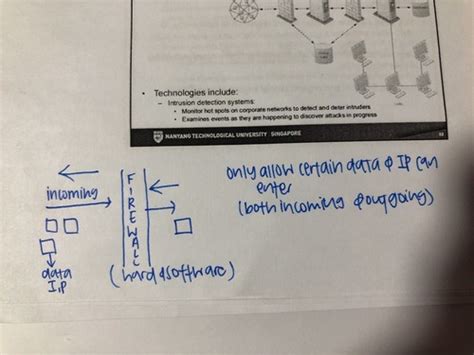 • Technologies include:
– Intrusion detection systems:
• Monitor hot spots on corporate networks to detect and deter intruders
• Examines events as they are happening to discover attacks in progress
NANYANG TECHNOLOGICAL UNIVERSITY SINGAPORE
only allow certain data & IP can
enter
(both incoming & outgoing)
incoming
FIREWALL
data
I.P
(hard & software)